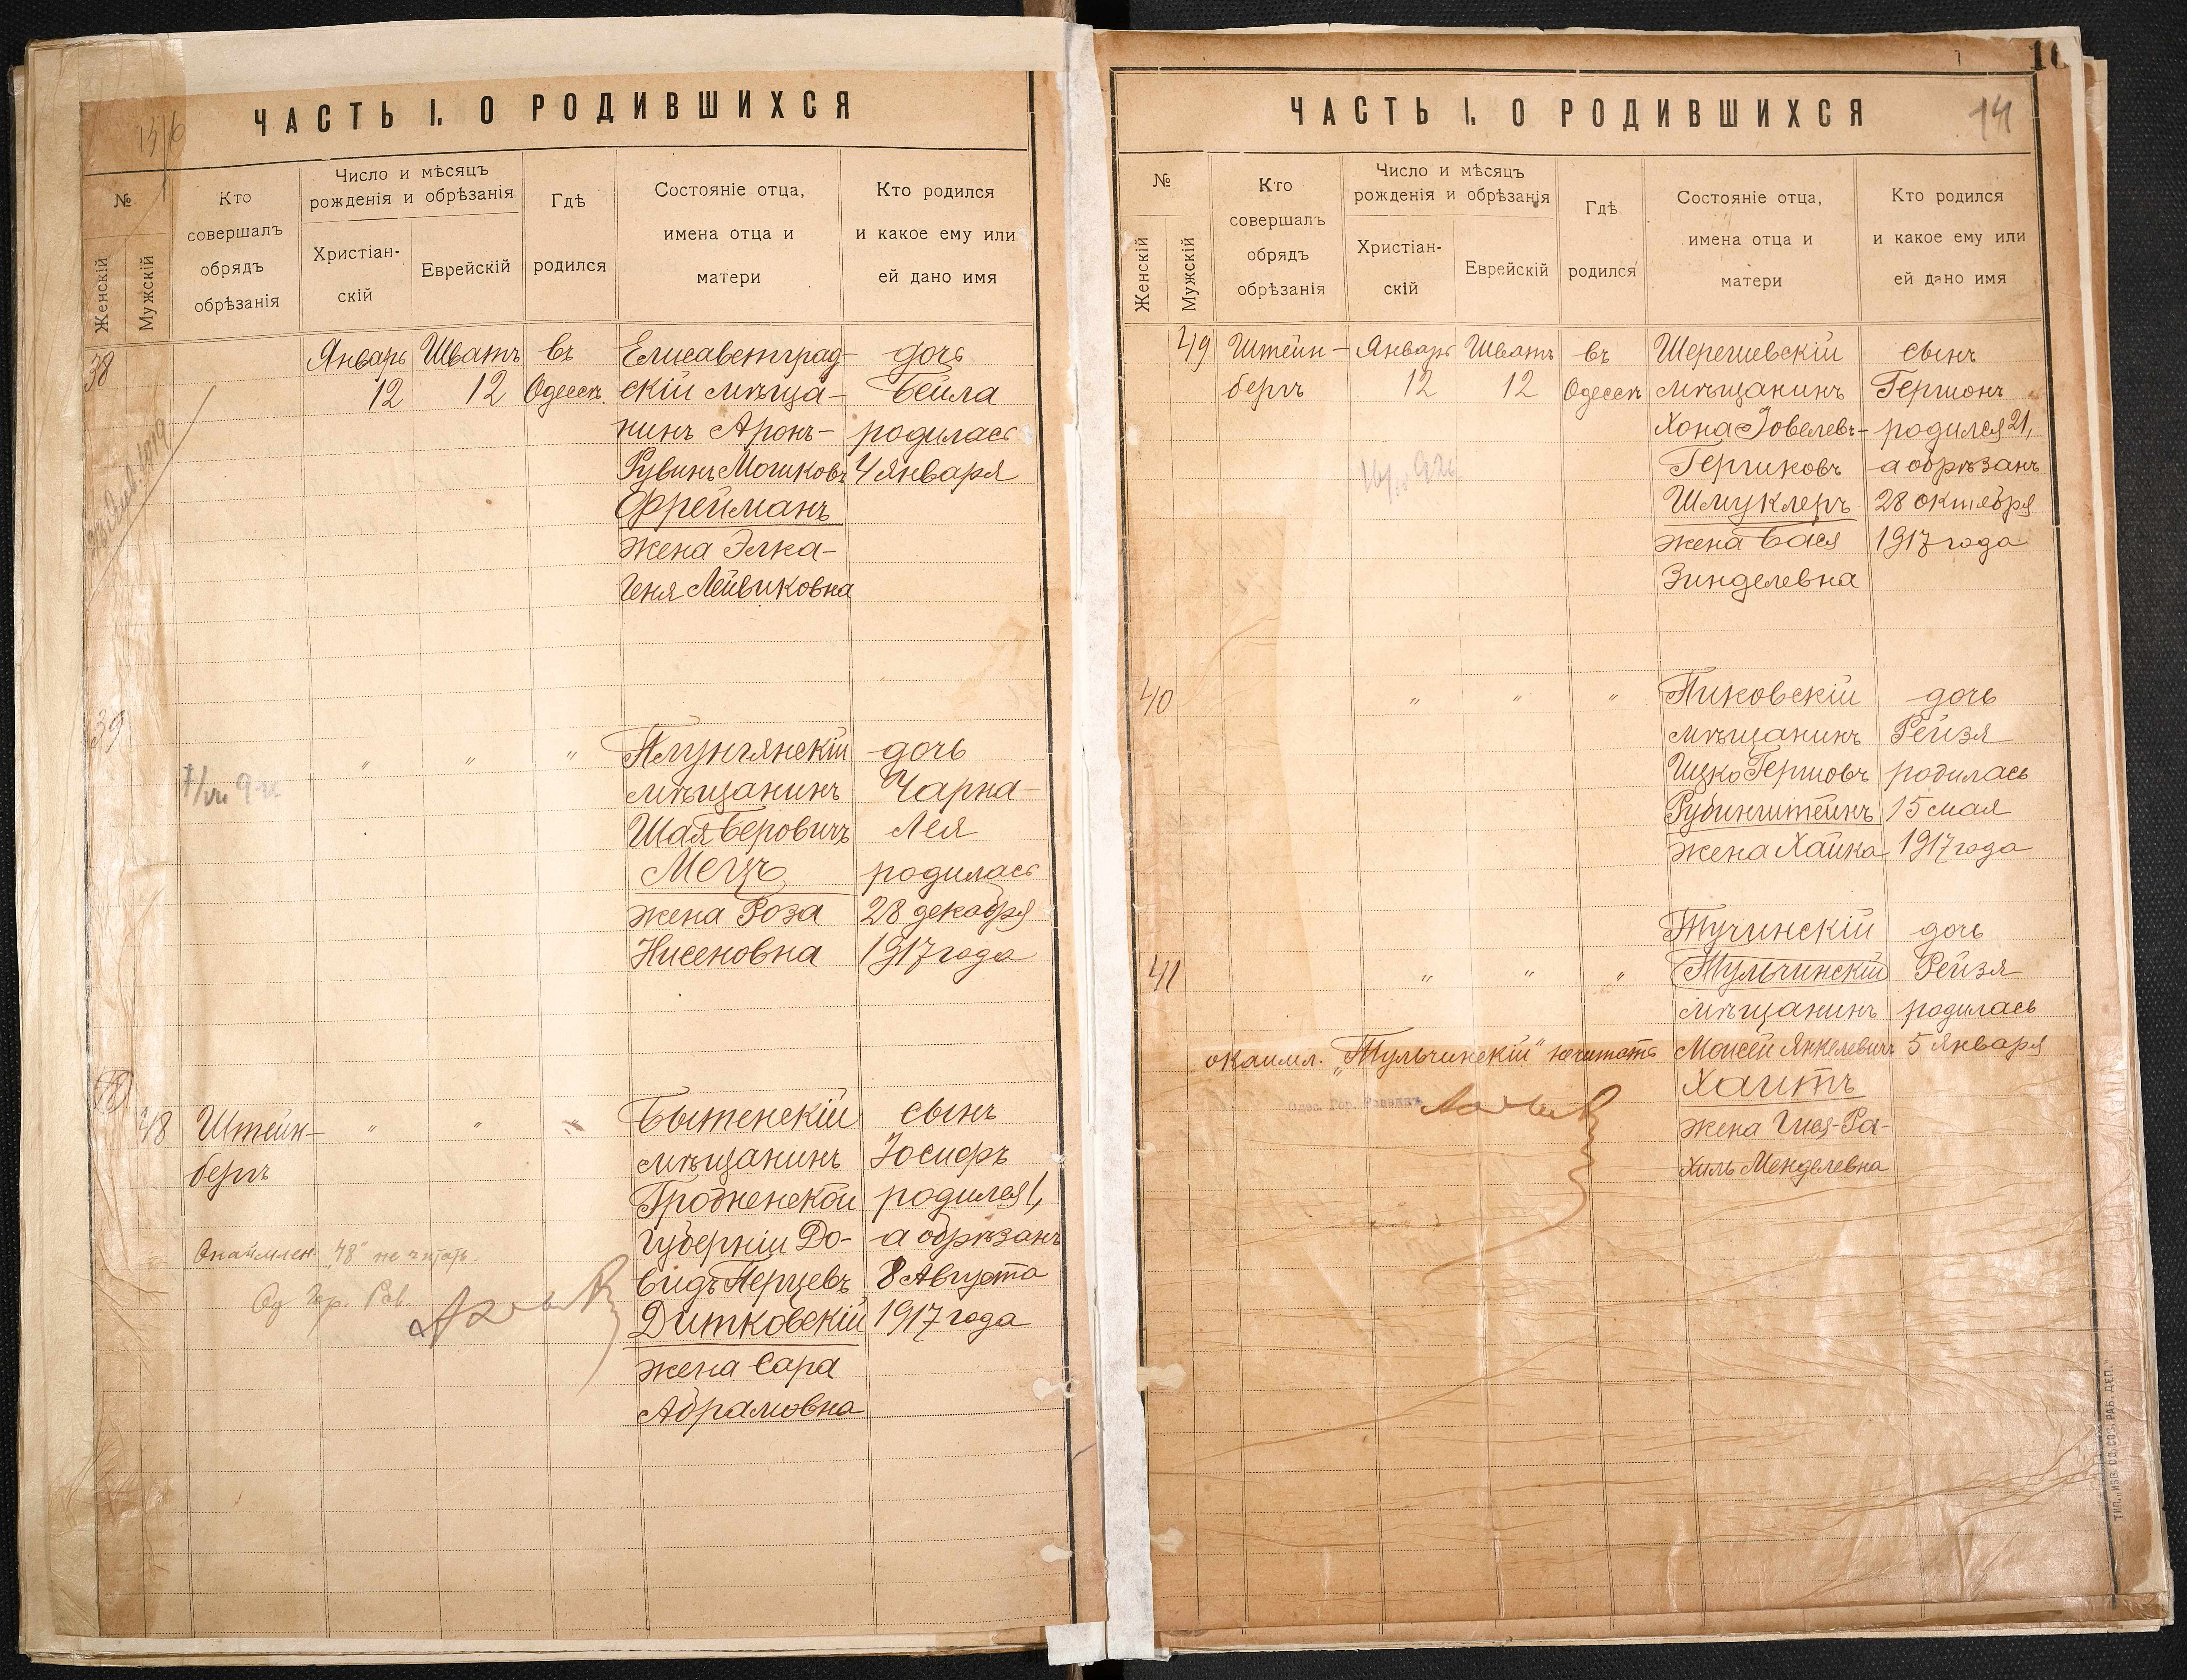 ЧАСТЬ I. О РОДИВШИХСЯ
№
Женскій
Мужскій
Кто
совершалъ
обрядъ
обрѣзанія
Число и мѣсяцъ
рожденія и обрѣзанія
Христіан-
скій
Еврейскій
Гдѣ
родился
Состояніе отца,
имена отца и
матери
Кто родился
и какое ему или
ей дано имя
38
Январь
12
Шватъ
12
въ
Одессѣ
Елисаветград-
скій мѣща-
нинъ Аронъ-
Рувинъ Мошковъ
Фрейманъ
жена Элка-
Геня Лейвиковна
дочь
Бейла
родилась
4 января
39
"
"
"
Плунгянскій
мѣщанинъ
Шая Беровичъ
Мецъ
жена Роза
Нисеновна
дочь
Чарна-
Лея
родилась
28 декабря
1917 года
48
Штейн-
бергъ
"
"
"
Бытенскій
мѣщанинъ
Гродненской
губерніи До-
видъ Перцевъ
Дитковскій
жена Сара
Абрамовна
сынъ
Іосифъ
родился 1,
а обрѣзанъ
8 Августа
1917 года
Окаймлен. "48" не читать.
Од. Гор. Рав.
ЧАСТЬ I. О РОДИВШИХСЯ
14
№
Женскій
Мужскій
Кто
совершалъ
обрядъ
обрѣзанія
Число и мѣсяцъ
рожденія и обрѣзанія
Христіан-
скій
Еврейскій
Гдѣ
родился
Состояніе отца,
имена отца и
матери
Кто родился
и какое ему или
ей дано имя
49
Штейн-
бергъ
Январь
12
Шватъ
12
въ
Одессѣ
Шерешевскій
мѣщанинъ
Хона Іовелевъ-
Гершковъ
Шмуклеръ
жена Бася
Зинделевна
сынъ
Гершонъ
родился 21,
а обрѣзанъ
28 октября
1917 года
40
"
"
"
Пиковскій
мѣщанинъ
Ицко Гершовъ
Рубинштейнъ
жена Хайка
дочь
Рейзя
родилась
15 мая
1917 года
41
"
"
"
Тучинскій
Тульчинскій
мѣщанинъ
Моисей Янкелевичъ
Хаитъ
жена Гися-Ра-
хиль Менделевна
дочь
Рейзя
родилась
5 Января
окаймл. "Тульчинскій" не читать
Одес. Гор. Раввинъ